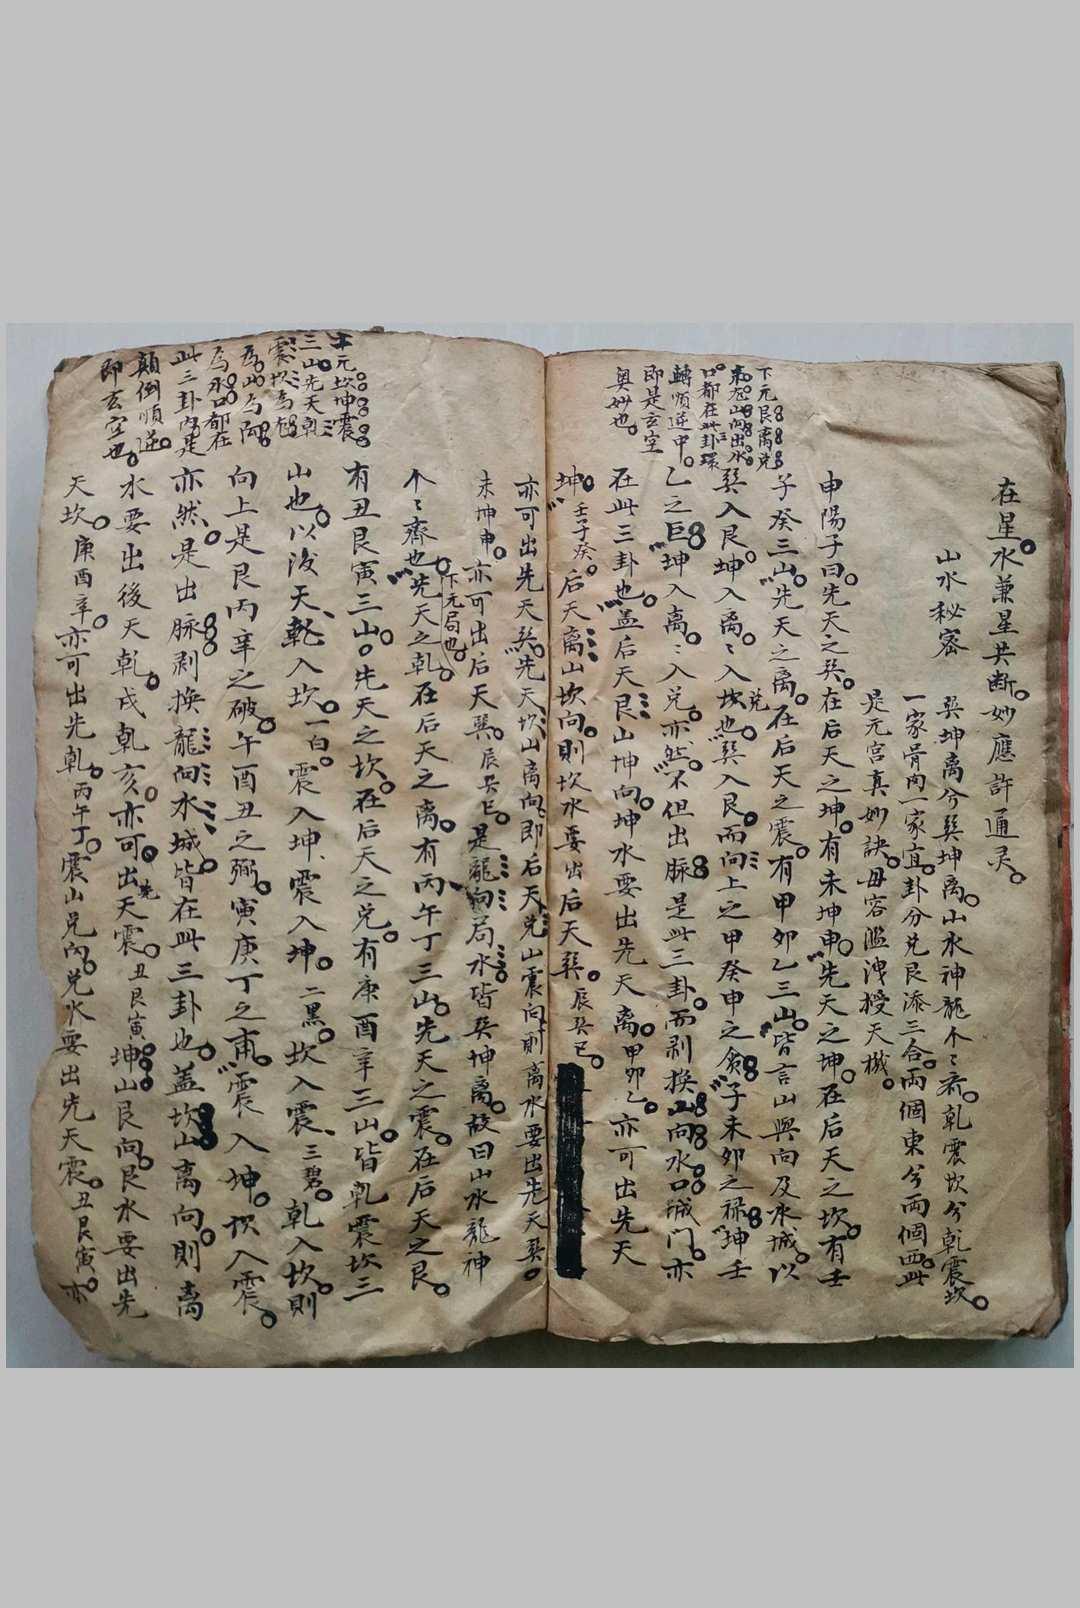 在星。水兼星共断。妙應許通灵。
山水秘密
巽坤离兮巽坤离。山水神龍个〻齐。乾震坎兮乾震坎。
一家骨肉一家宜。卦分兑艮添三合。両個東兮両個西。此
是元宫真妙訣。毋容滥洩授天機。
申陽子曰。先天之巽。在后天之坤。有未坤申。先天之坤。在后天之坎。有壬
子癸三山。先天之离。在后天之震。有甲夘乙三山。皆言山與向及水城。以
巽入艮。坤入离。〻入坎兑也。巽入艮。而向上之甲癸申之貪。子未夘之禄。坤壬
乙之巨。坤入离。〻入兑。亦然。不但出脉。是此三卦。而剥換山向水口城門。亦
在此三卦也。盖后天艮山坤向。坤水要出先天离。甲夘乙。亦可出先天
坤。壬子癸。后天离山坎向。則坎水要出后天巽。辰巽巳。
亦可出先天巽。先天坎山离向。即后天兑山震向。則离水要出先天巽。
未坤申。亦可出后天巽。辰巽巳。是龍向局水皆巽坤离。故曰山水龍神
个〻齊也。先天之乾。在后天之离。有丙午丁三山。先天之震。在后天之艮。
下元局也。
有丑艮寅三山。先天之坎。在后天之兑。有庚酉辛三山。皆乾震坎三
山也。以後天乾入坎。一白。震入坤、震入坤。二黑。坎入震、三碧。乾入坎。則
向上是艮丙辛之破。午酉丑之弼。寅庚丁之甫。震入坤。坎入震。
亦然。是出脉剥換龍向水城。皆在此三卦也。盖坎山离向。則离
水要出後天乾。戌乾亥。亦可。出先天震。丑艮寅。坤山艮向。艮水要出先
天坎。庚酉辛。亦可出先乾。丙午丁。震山兑向。兑水要出先天震。丑艮寅。亦
下元艮离兑
口都在此卦環
轉順逆中。
即是玄空
奥妙也。
上元坎坤震
三山。先天乾
震坎為
為水口都在
此三卦内是
顛倒順逆。
即玄空也。